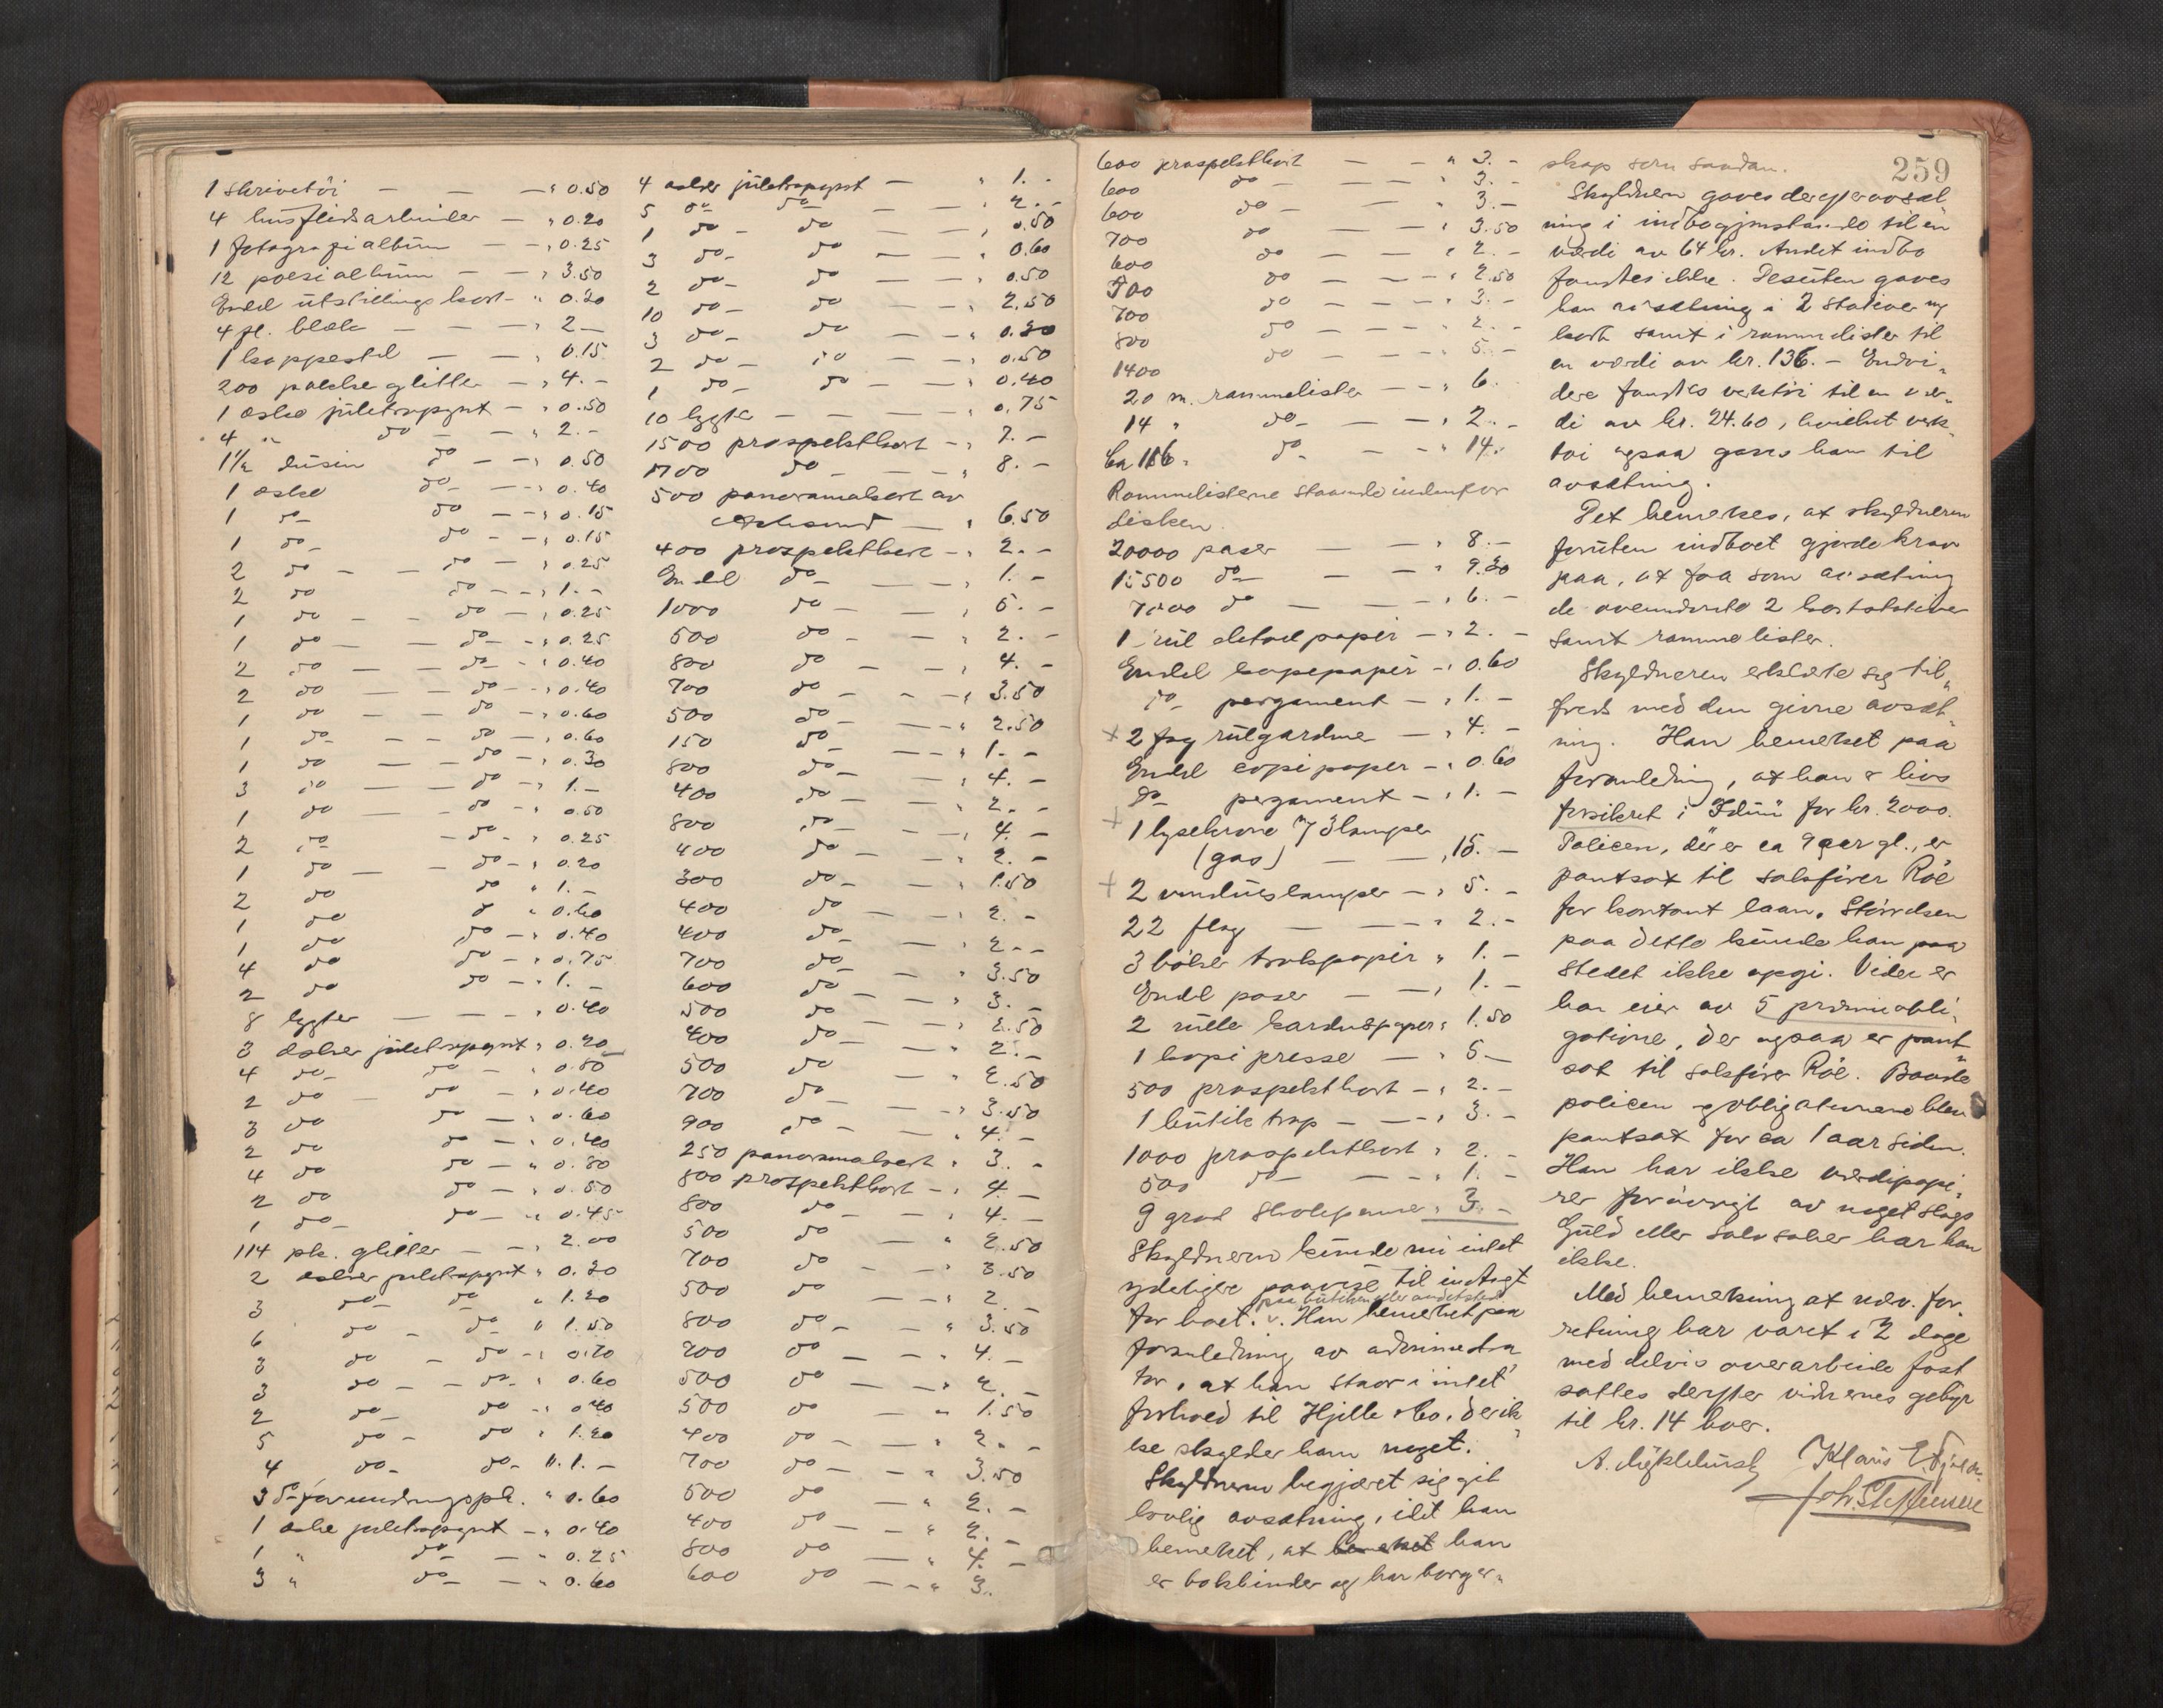 1 skrivetöi — — — " 0.50
4 husflidsarbeider — " 0.20
1 fotografialbum — — " 0.25
12 poesialbum — — " 3.50
Endel utstillingskort — " 0.20
4 fl. blæk — — — " 2 —
1 kappestel — — " 0.15
200 pakke glitter — " 4. –
1 æske juletrapynt — " 0.50
4 " do — — " 2. –
1½ dusin do — — " 0.50
1 æske do — — " 0.40
1 do — do — — " 0.15
1 do — do — — " 0.15
2 do — — do — " 0.25
2 do do — — " 1. –
1 do — — do — " 0.25
1 do — — do — " 0.25
2 do — — do — " 0.40
2 do — — do — " 0.40
1 do — — do — " 0.60
1 do — — do — " 0.60
1 do — — do — " 0.30
3 do — — do — " 1. –
1 do — do — " 0.50
2 do — do — " 0.25
1 do — — do — " 0.20
2 do do " 1. –
1 do do " 0.60
1 do do — " 0.40
4 do do — " 0.75
2 do do — " 1. –
8 lygter — — — " 0.40
3 æsker juletrapynt " 0.20
4 do — do — " 0.80
2 do — do — " 0.40
3 do do — " 0.60
2 do do — " 0.40
4 do do — " 0.80
2 do do — " 0.50
1 do — do — " 0.45
114 pk. glitter — — " 2.00
2 æsker juletrapynt " 0.30
3 do — do " 1.20
6 do — do " 1.50
3 do — do — " 0.70
3 do — — do — " 0.60
2 do — do — " 0.40
5 do — do " 1.20
4 do — do — " 1. –
3 do forundringspk. " 0.60
1 æske juletrapynt — " 0.40
1 " do — — " 0.25
3 " do — — " 0.60
4 æsker juletrapynt — " 1. –
5 do do — — " 2. –
1 do — do — — " 0.50
3 do — do — — " 0.60
2 do — do — — " 0.50
10 do — do — — " 2.50
3 do — do — — " 0.30
2 do — do — — " 0.50
1 do — do — — " 0.40
10 lygter — — — " 0.75
1500 prospektkort — " 7. –
1700 do — — — " 8. –
500 panoramakort av
— " 6.50
400 prospektkort — " 2. –
Endel do — — — " 1. –
1000 do — — " 5. –
500 do — — " 2. –
800 do — — " 4. –
700 do — — " 3.50
500 do — — " 2.50
150 do — — " 1. –
800 do — — " 4. –
400 do — — " 2. –
800 do — — " 4. –
400 do — — " 2. –
300 do — — " 1.50
400 do — — " 2. –
400 do — — " 2. –
700 do — — " 3.50
600 do — — " 3. –
500 do — — " 2.50
400 do — — " 2. –
500 do — — " 2.50
700 do — — " 3.50
900 do — — " 4. –
250 panoramakort " 3. –
800 prospektkort — " 4. –
800 do — — " 4. –
500 do — " 2.50
700 do — " 3.50
500 do — — " 2. –
800 do — " 3.50
800 do — " 4. –
500 do — — " 2. –
500 do — " 1.50
400 do — — " 2. –
700 do — — " 3.50
500 do — " 2. –
400 do — — " 2. –
800 do — " 4. –
600 do — — " 3.
600 prospektkort — — " 3. –
600 do — — — " 3. –
600 do — — — " 3. –
700 do — — " 3.50
600 do — — — " 2. –
500 do — — — " 2.50
700 do — — — " 3. –
800 do — — — " 2. –
1400 do — — — " 5. –
20 m. rammelister — — " 6.
14 " do — — " 2. –
Ca 116 " do — — " 14.
Rammelisterne staaende indenfor
disken.
20000 poser — — " 8. –
15500 do — — — " 9.30
7000 do — — — " 6. –
1 rul silkepapir — " 2. –
Endel kopipapir — " 0.60
do pergament — " 1. –
+ 2 fag rulgardiner — " 4. –
Endel copipapir — " 0.60
do pergament — " 1. –
+ 1 lysekrone m/ 3 lamper
(gas) — — " 15. –
+ 2 vinduslamper — " 5. –
22 flag — — — " 2. –
3 böker trækpapir " 1. –
Endel poser — — " 1. –
2 rulle karduspapir " 1.50
1 kopipresse — " 5 –
500 prospektkort — " 2. –
1 butiktrap — — " 3. –
1000 prospektkort " 2. –
500 do — — " 1. –
9 gros skolepenne " 3. –
Skyldneren kunde nu intet
yderligere paavise til indtægt
paa butikken eller andetsteds
for boet. v. Han bemerket paa
foranledning av administra
tor, at han staar i intet
forhold til Hjelle & Co. der ik
ke skylder ham noget.
Skyldneren begjæret sig git
lovlig avsætning, idet han
bemerket, at bemerket han
er bokbinder og har borger=
259
skap som saadan.
Skyldneren gaves derefter avsæt
ning i indbogjenstande til en
værdi av 64 kr. Andet indbo
fandtes ikke. Desuten gaves
han avsætning i 2 stativer m/
kort samt i rammelister til
en værdi av kr. 136. – Endvi=
dere fandtes verktöi til en vær=
di av kr. 24.60, hvilket verk=
töi ogsaa gaves ham til
avsætning.
Det bemerkes, at skyldneren
foruten indboet gjorde krav
paa, at faa som avsætning
de ovennævnte 2 kortstativer
samt rammelister.
Skyldneren erklærte sig til=
freds med den givne avsæt=
ning. Han bemerket paa
foranledning, at han er livs
forsikret i "Idun" for kr. 2000.
Policen, der er ca 9 aar gl., er
pantsat til sakförer Röe
for kontant laan. Störrelsen
paa dette kunde han paa
stedet ikke opgi. Videre er
han eier av 5 præmieobli=
gationer, der ogsaa er pant=
sat til sakförer Röe. Baade
policen og obligationerne blev
pantsat for ca 1 aar siden.
Han har ikke værdipapi=
rer forövrigt av noget slags
Guld eller sölvsaker har han
ikke.
Med bemerkning at nærv. for=
retning har varet i 2 dage
med delvis overarbeide fast
sattes derefter vidnernes gebyr
til kr. 14 hver.